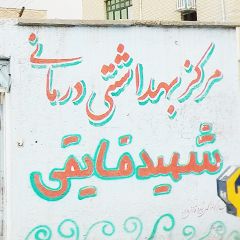 مرکز بهداشتی درمانی
شهید فایقی